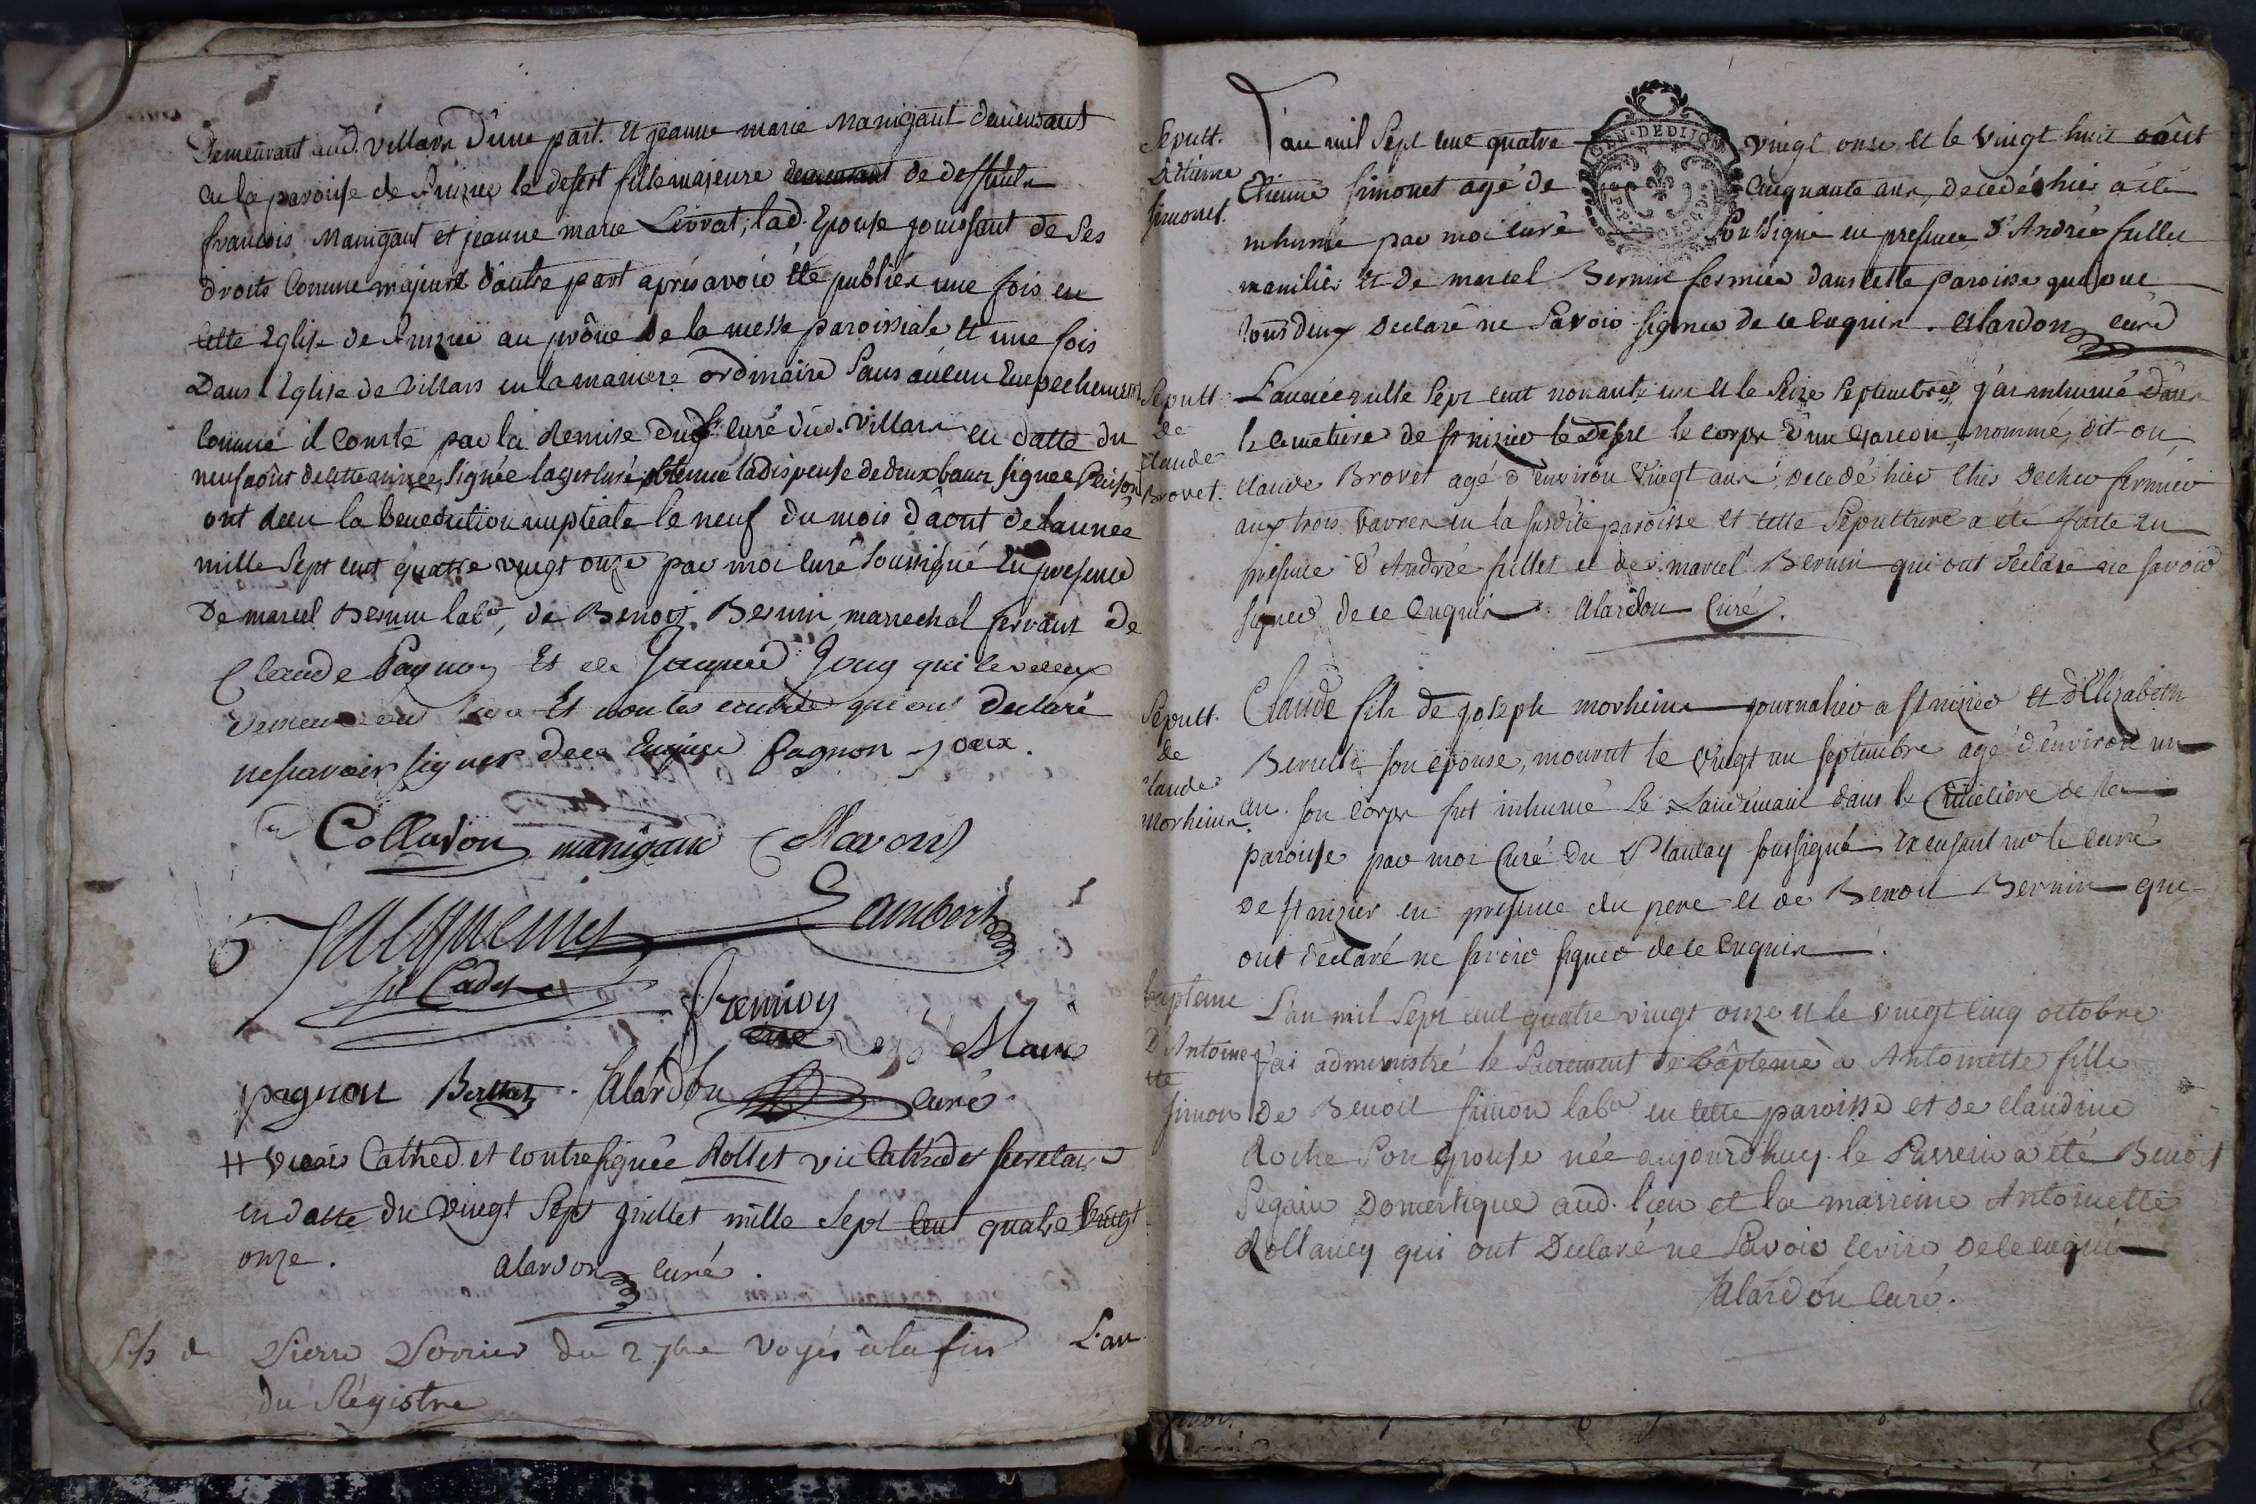 Demeurant aud. Villars d'une part. Et jeanne marie Manigant demeurant
en la paroisse de St nizier le desert fille majeure demeurant de deffunts
francois Manigant et jeanne marie Livrat; lad. Epouse jouissant de Ses
droits Comme majeure d'autre part aprés avoir été publiés une fois en
Cette Eglise de St nizier au prône de la messe paroissiale et une fois
Dans l'Eglise de Villars en la maniere ordinaire Sans aucun Empechement
Comme il Conste par la Remise dud. Sr. curé dud. Villars en datte du
neuf août de cette année, signée curé, obtenue la dispense de deux bancs signée
ont Recu la benediction nuptiale le neuf du mois d'aout de l'année
mille Sept cent quatre vingt onze par moi curé Soussigné En presence
De marcel Bernin labr, de Benoit Bernin marrechal servant de
Claude Pagnon Et de Jacques Joug qui
Et non les autres qui ont Declaré
ne scavoir signer de ce Enquise Pagnon joux.
Colludon manigant
Jacquemet Lambert
fil Cadet
Maire
pagnon Berthet. Alardon curé
# Vicair Cathed. et Contresignée Rollet vic Cathed et secretair
en datte du vingt Sept juillet mille Sept Cent quatre Vingt
onze. Alardon curé.
Pierre du 7bre Voyés à la fin
du Régistre
L'an
Sepult.
D'Etienne
Simonet.
L'an mil Sept cent quatre vingt onze et le vingt huit août
Etienne Simonet agé de Cinquante ans, decedé hier a été
inhumé par moi curé Soussigné en presence d'André fillet
manilier et de marcel Bernin fermier dans cette paroisse qui ont
tous deux Declaré ne Savoir signer de ce Enquis. Alardon curé
Sepult.
de
Claude
Brovet.
L'année mille Sept cent nonante un et le Seize Septembre j'ai inhumé dans
le cimetiere de St nizier le Desert le corps d'un Garcon, nommé, dit-on,
Claude Brovet agé d'environ Vingt ans decedé hier chés Decher fermier
aux trois en la susdite paroisse et cette Sepulture a été faite en
presence d'André fillet et de marcel Bernin qui ont déclaré ne savoir
signer de ce Enquis. Alardon Curé.
Sepult.
de
Claude
Morheins
Claude fils de joseph morheins journalier a St nizier et d'Elizabeth
son épouse, mourut le Vingt un septembre agé d'environ un
an. Son corps fut inhumé le Landemain dans le Cimetiere de sa
paroisse par moi Curé du Plantay soussigné En absent mr le curé
de St nizier en presence du pere et de Benoit Bernin qui
ont déclaré ne savoir signer de ce Enquis.
bapteme
D'Antoine
tte
Simon
L'an mil Sept cent quatre vingt onze et le vingt cinq octobre
j'ai administré le Sacrement de bâpteme à Antoinette fille
De Benoit Simon labr en cette paroisse et de claudine
Roche Son Epouse née aujourd'huy. le Parrein a été Benoit
Segain Domestique aud. lieu et la marreine Antoinette
Rollancy qui ont Declaré ne Savoir ecrire de ce enquis
Alardon Curé.